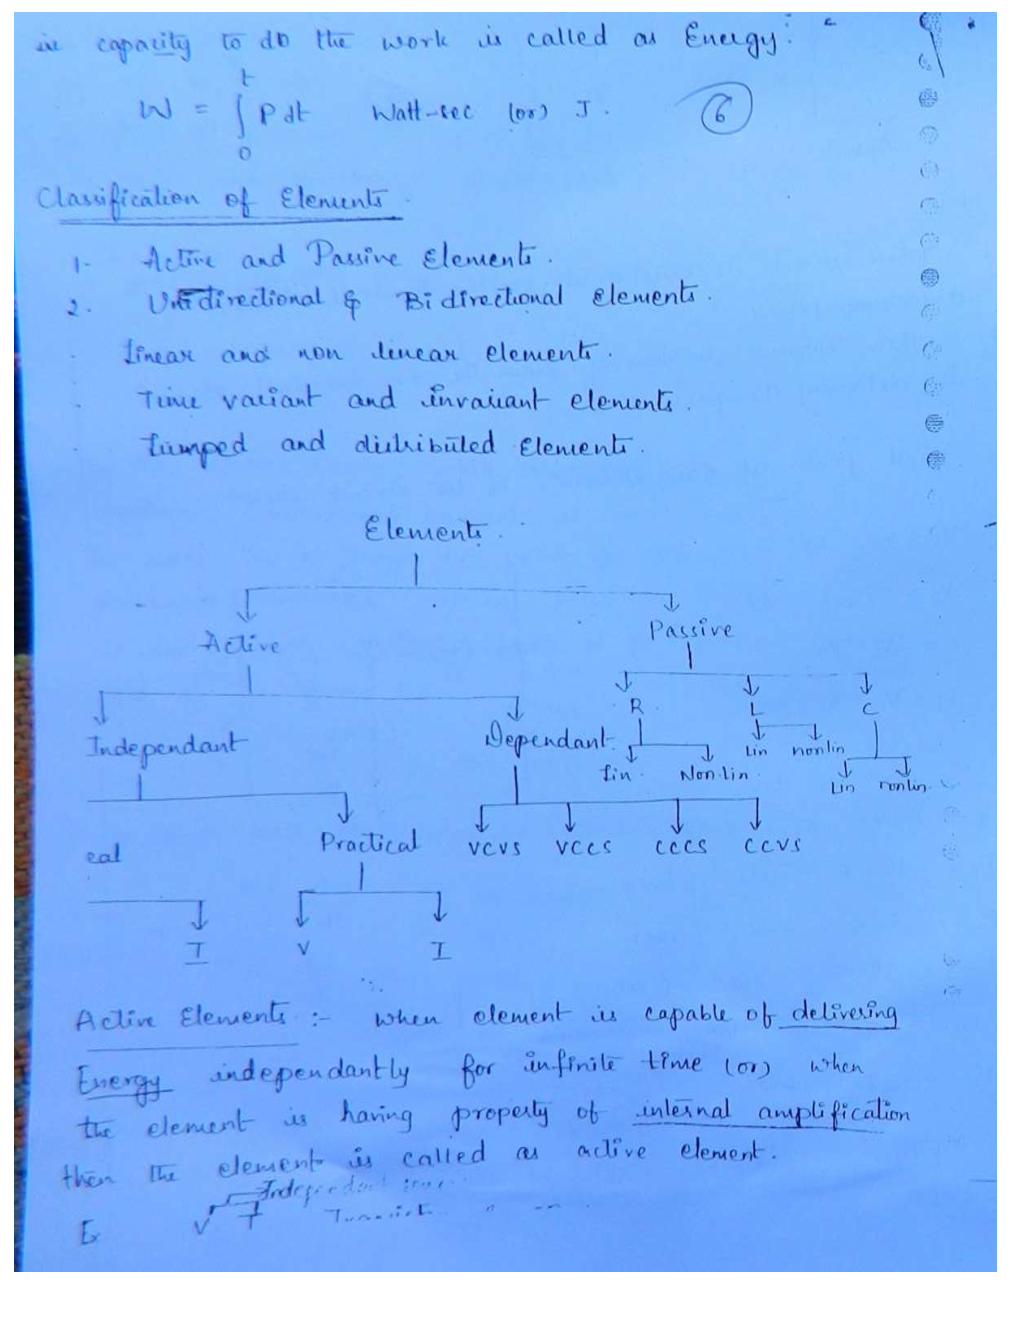 ie capacity to do the work is called as Energy.
t
W = ∫ P dt Watt-sec (or) J. 6
0
Classification of Elements.
1- Active and Passive Elements.
2. directional & Bi directional elements.
Linear and non linear elements.
Time variant and invariant elements.
Lumped and distributed Elements.
Elements.
Active Passive
R L C
Independant Dependant. Lin nonlin
Lin. Non.lin. Lin nonlin.
eal Practical VCVS VCCS CCCS CCVS
I V I
Active Elements :- when element is capable of delivering
Energy independantly for infinite time (or) when
the element is having property of internal amplification
then the element is called as active element.
Ex V I